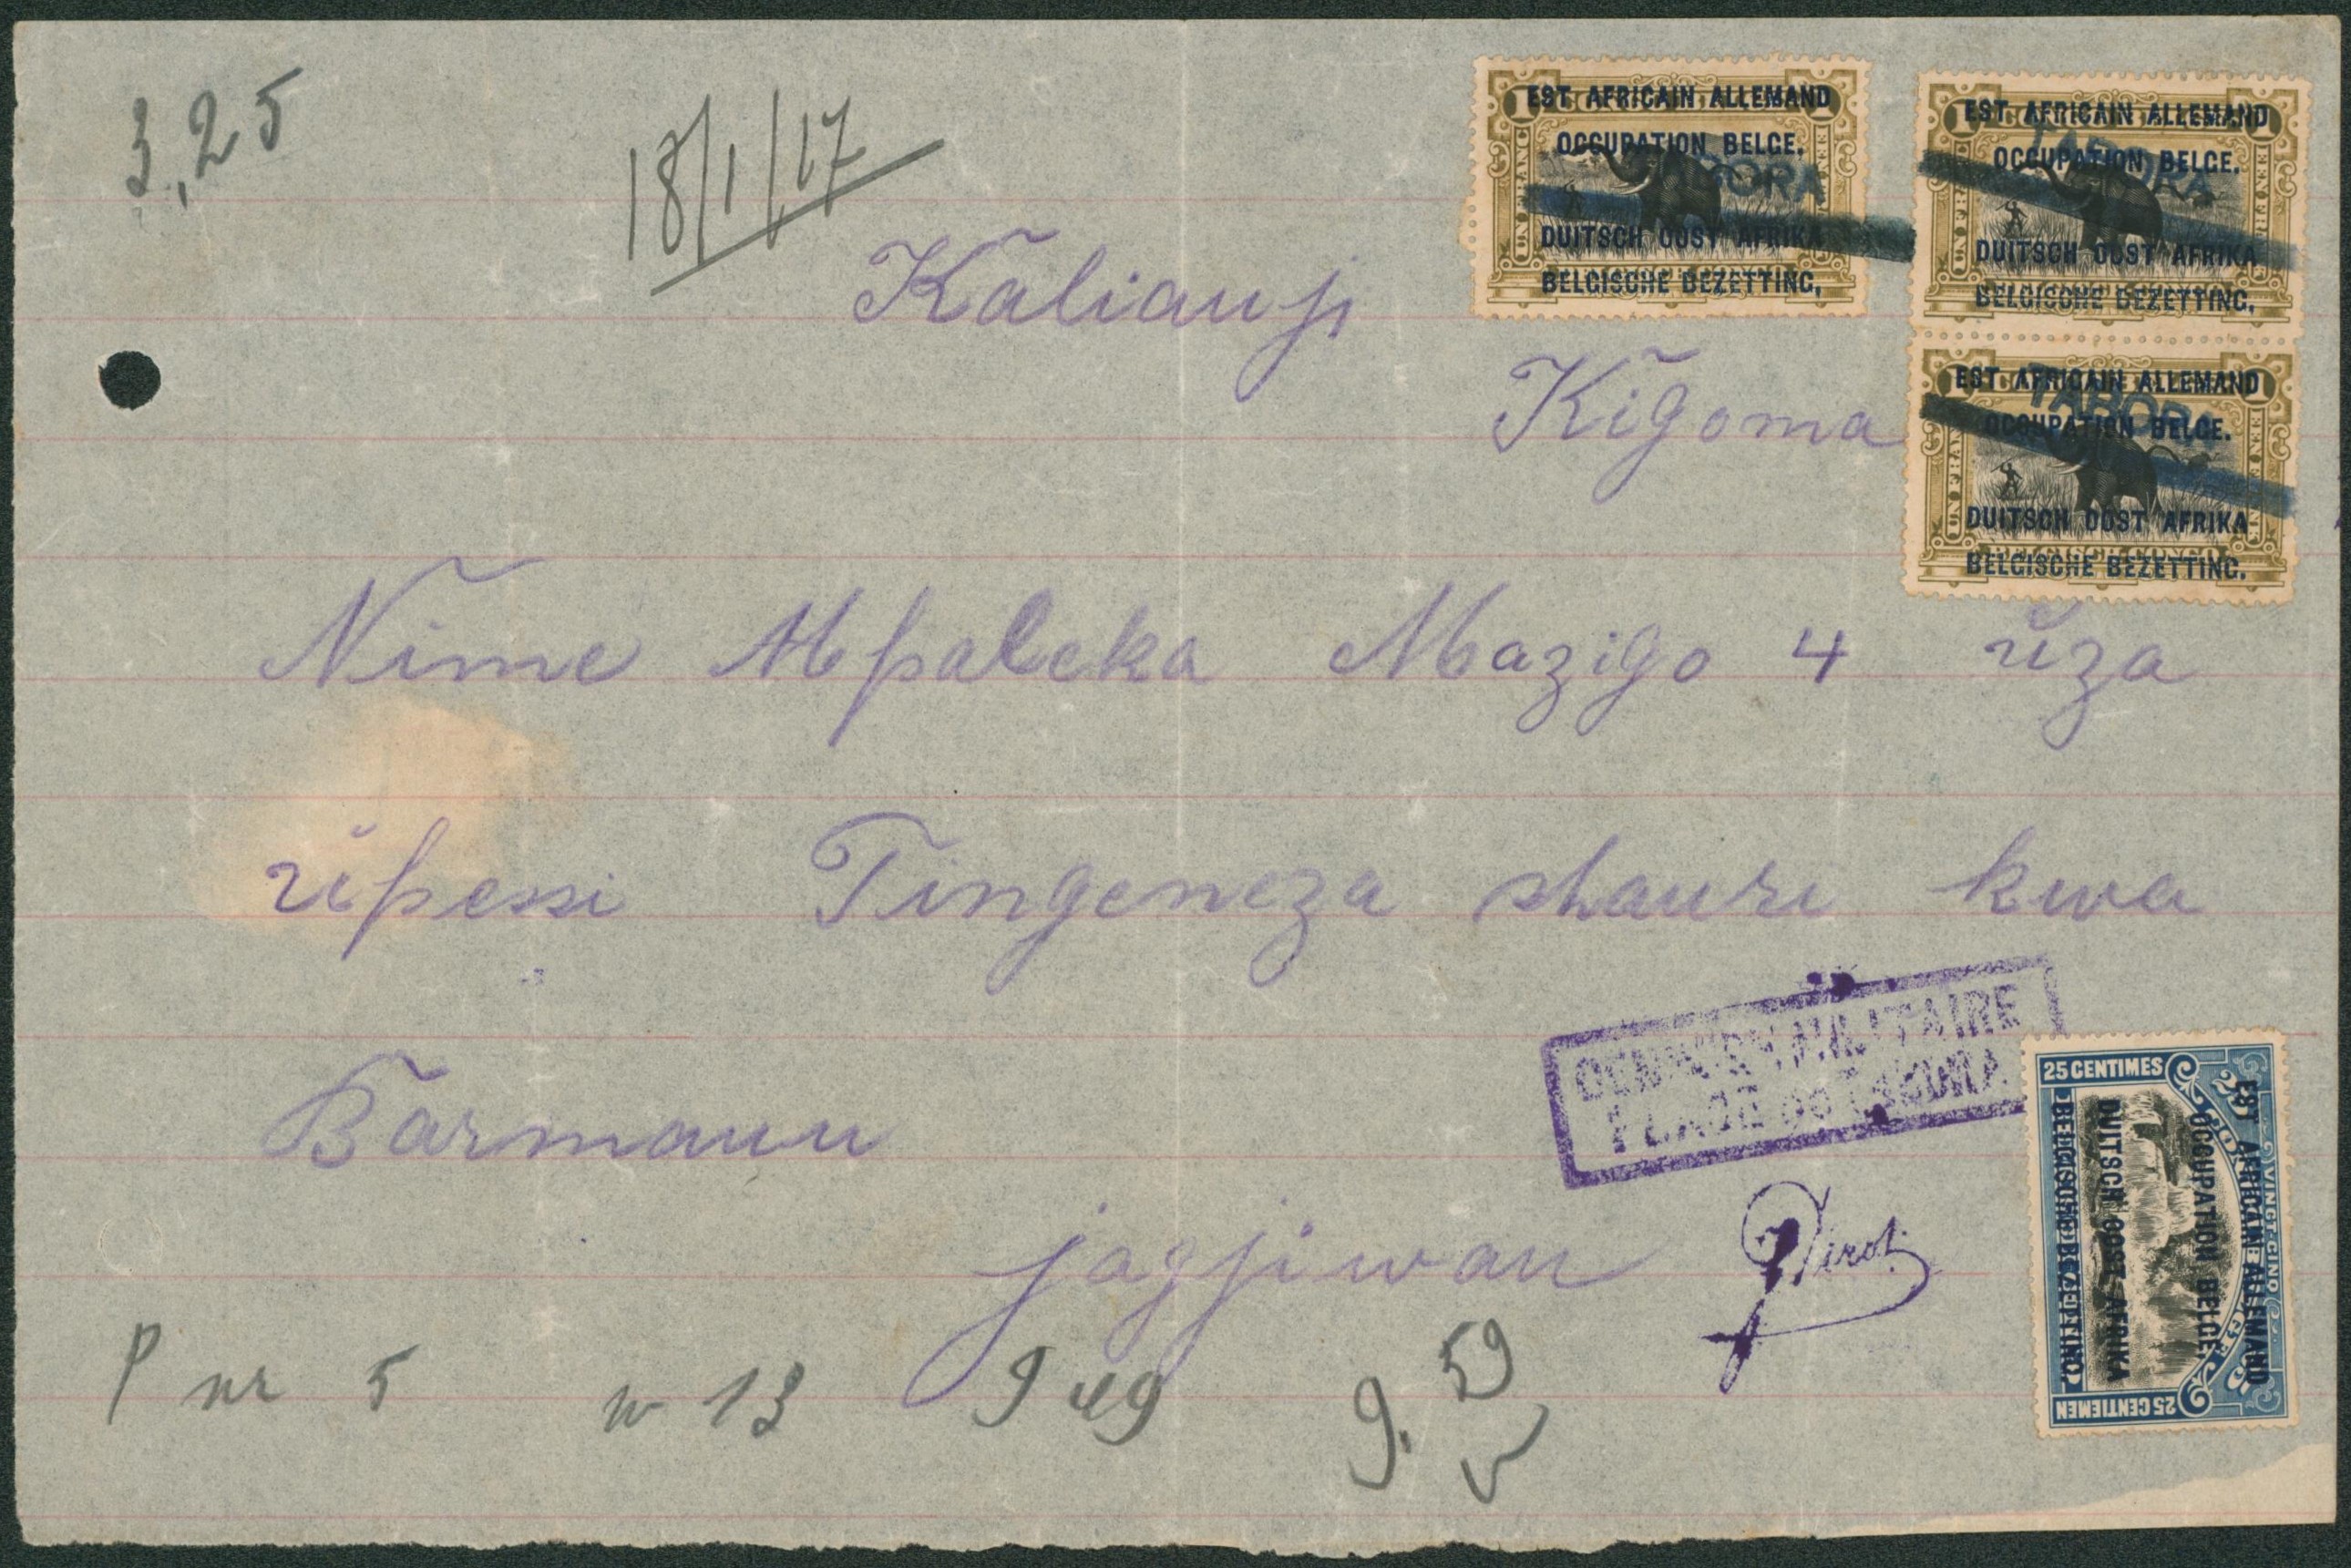 3,25
18/1/17
EST AFRICAIN ALLEMAND
OCCUPATION BELGE.
DUITSCH OOST AFRIKA
BELGISCHE BEZETTING.
TABORA
EST AFRICAIN ALLEMAND
OCCUPATION BELGE.
DUITSCH OOST AFRIKA
BELGISCHE BEZETTING.
TABORA
EST AFRICAIN ALLEMAND
OCCUPATION BELGE.
DUITSCH OOST AFRIKA
BELGISCHE BEZETTING.
TABORA
Kalianji
Kigoma
Nime Mpaleka Mazigo 4 uza
upessi Tingeneza shauri kwa
Barmann
jagjiwan
CENSURE MILITAIRE
PLACE de TABORA
25 CENTIMES
VINGT-CINQ
EST AFRICAIN ALLEMAND
OCCUPATION BELGE.
DUITSCH OOST AFRIKA
BELGISCHE BEZETTING.
25 CENTIEMEN
P nr 5 w 13 9 49 9.59